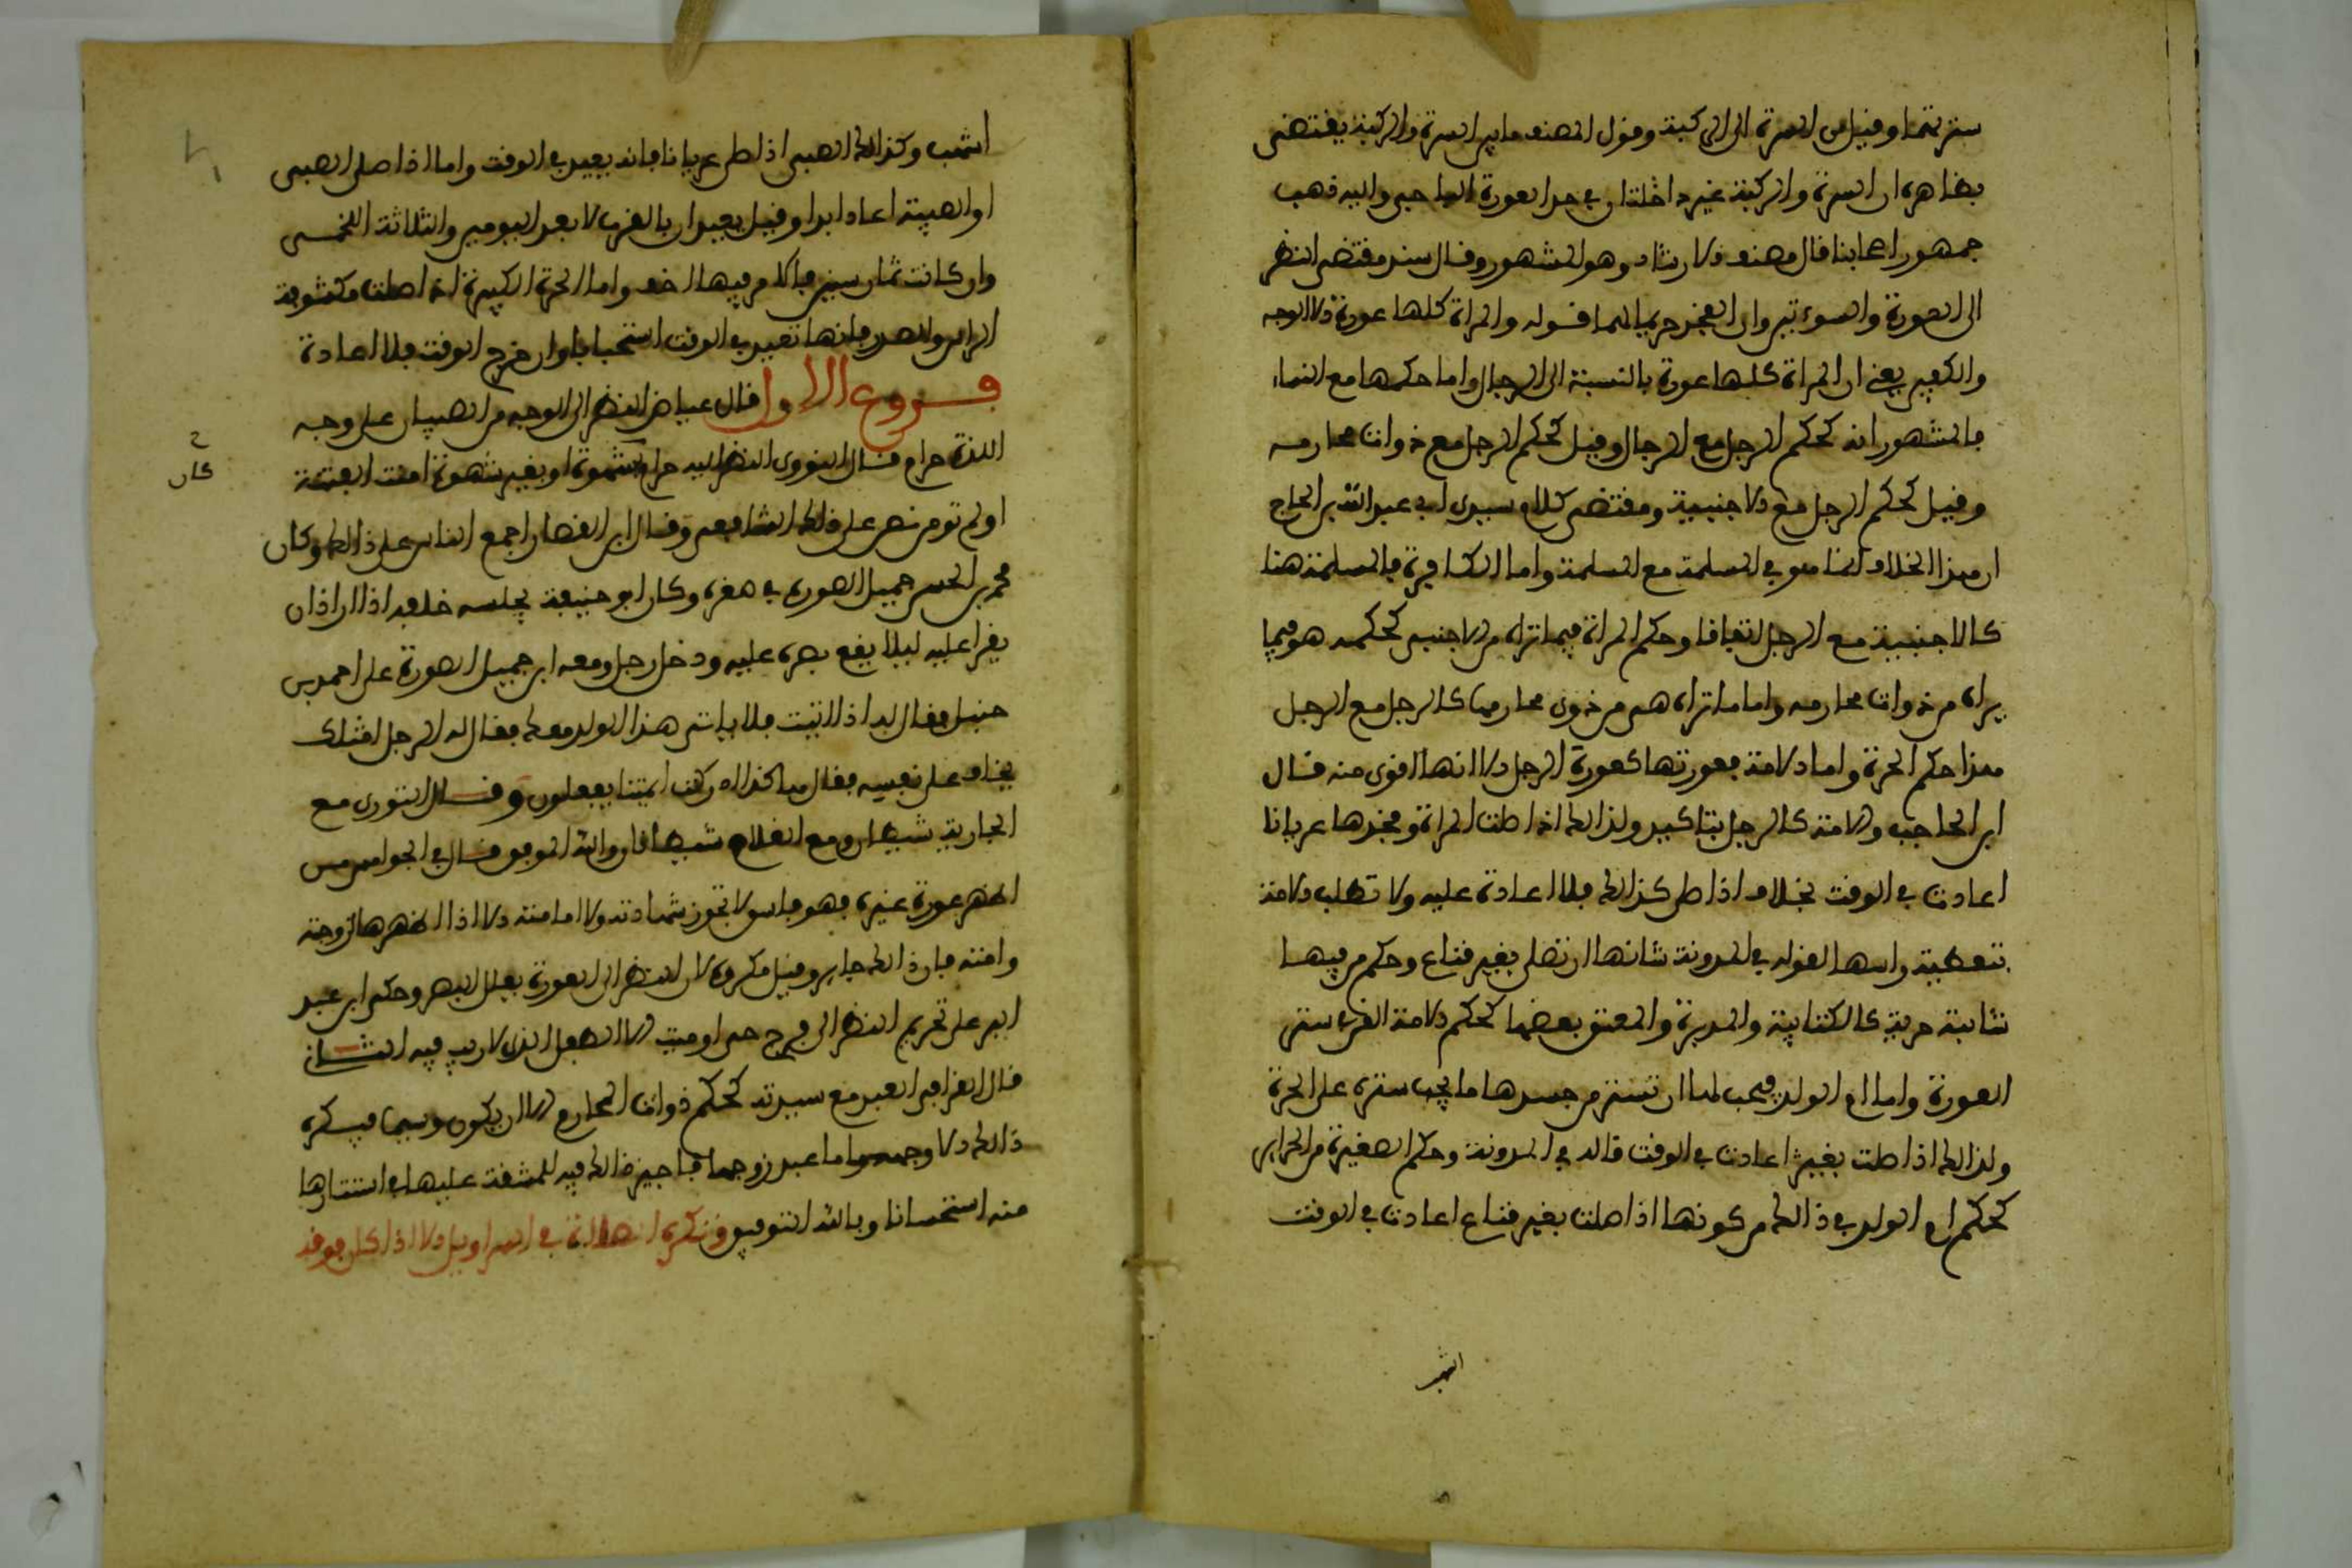 سترتهما وقيل من السرة الى الركبة وقول المصنف ما بين السرة والركبة يقتضي
بظاهره ان السرة والركبة غير داخلتان في حد العورة الباجي واليه ذهب
جمهور اصحابنا قال مصنف الارشاد وهو المشهور وقال سند مقتضى النظر
الى العورة والسوءتين وان الفخذ حريما لهما قوله والمراة كلها عورة الا الوجه
والكفين يعني ان المراة كلها عورة بالنسبة الى الرجال واما حكمها مع النساء
فالمشهور انه كحكم الرجل مع الرجال وقيل كحكم الرجل مع ذوات محارمه
وقيل كحكم الرجل مع الاجنبية ومقتضى كلام سيدي ابي عبد الله بن الحاج
ان هذا الخلاف انما هو في المسلمة مع المسلمة واما الكافرة فالمسلمة هنا
كالاجنبية مع الرجل اتفاقا وحكم المراة فيما تراه من الاجنبي كحكمه هو فيما
يراه من ذوات محارمه واما ما تراه هي من ذوي محارمها كالرجل مع الرجل
هذا حكم الحرة واما الامة فعورتها كعورة الرجل الا انها اقوى منه قال
ابن الحاجب والامة كالرجل بتاكيد ولذالك اذا صلت المراة وفخذها عريانا
اعادت في الوقت بخلافه اذا صلى كذالك فلا اعادة عليه ولا تطلب الامة
بتغطية راسها لقوله في المدونة شانها ان تصلي بغير قناع وحكم من فيها
شائبة حرية كالمكتابة والمدبرة والمعتق بعضها كحكم الامة القن في ستر
العورة واما ام الولد فيجب لها ان تستتر من جسدها ما يجب ستره على الحرة
ولذالك اذا صلت بغير اعادت في الوقت قاله في المدونة وحكم الصغيرة من الحراير
كحكم ام الولد في ذالك من كونها اذا صلت بغير قناع اعادت في الوقت
اشهب
اشهب وكذالك الصبي اذا صلى عريانا فانه يعيد في الوقت واما اذا صلى الصبي
او الصبية اعاد ابدا وقيل يعيدان بالقرب لا بعد اليومين والثلاثة اللخمي
وان كانت ثمان سنين فالامر فيها اخف واما الحرة الكبيرة اذا صلت مكشوفة
الراس والصدر فانها تعيد في الوقت استحبابا وان خرج الوقت فلا اعادة
فروع الاول قال عياض النظر الى الوجه من الصبيان على وجه
اللذة حرام قال النووي النظر اليه حرام بشهوة او بغير شهوة امنت الفتنة
او لم تومن نص على ذالك الشافعي وقال ابن القطان اجمع الناس على ذالك وكان
ح
كان
محمد بن الحسن جميل الصورة في صغره وكان ابو حنيفة يجلسه خلفه اذا اراد ان
يقرا عليه ليلا يقع بصره عليه ودخل رجل ومعه ابن جميل الصورة على احمد بن
حنبل فقال له اذا اتيت فلا ياتي هذا الولد معك فقال له الرجل امثلك
يخاف على نفسه فقال هاكذا ادركت ايمتنا يفعلون وقال الثوري مع
الجارية شيطان ومع الغلام شيطانان والله الموفق قال في الجواهر من
اظهر عورة غيره فهو فاسق لا تجوز شهادته ولا امامته الا اذا اظهرها لزوجته
وامته فان ذالك جايز وقيل مكروه لان النظر الى العورة يعلل البصر وحكى ابن عبد
البر على تحريم النظر الى فرج حي او ميت الا الطفل الذي لا ريب فيه الثاني
قال القرافي العبد مع سيدته كحكم ذوات المحارم الا ان يكون وسيما فيكره
ذالك الا وجهه واما عبد زوجها فاجيز ذالك فيه للمشقة عليها في استتارها
منه استحسانا وبالله التوفيق وتكره الصلاة في السراويل الا اذا كان فوقه